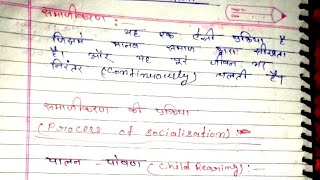 समाजीकरण :-
यह एक ऐसी प्रक्रिया है
जिसमें मानव समाज द्वारा सीखता
है। और यह पूरे जीवन भर
निरंतर (Continuously) चलती है।
समाजीकरण की प्रक्रिया
(Process of Socialisation) :-
पालन - पोषण (Child Rearing) :-